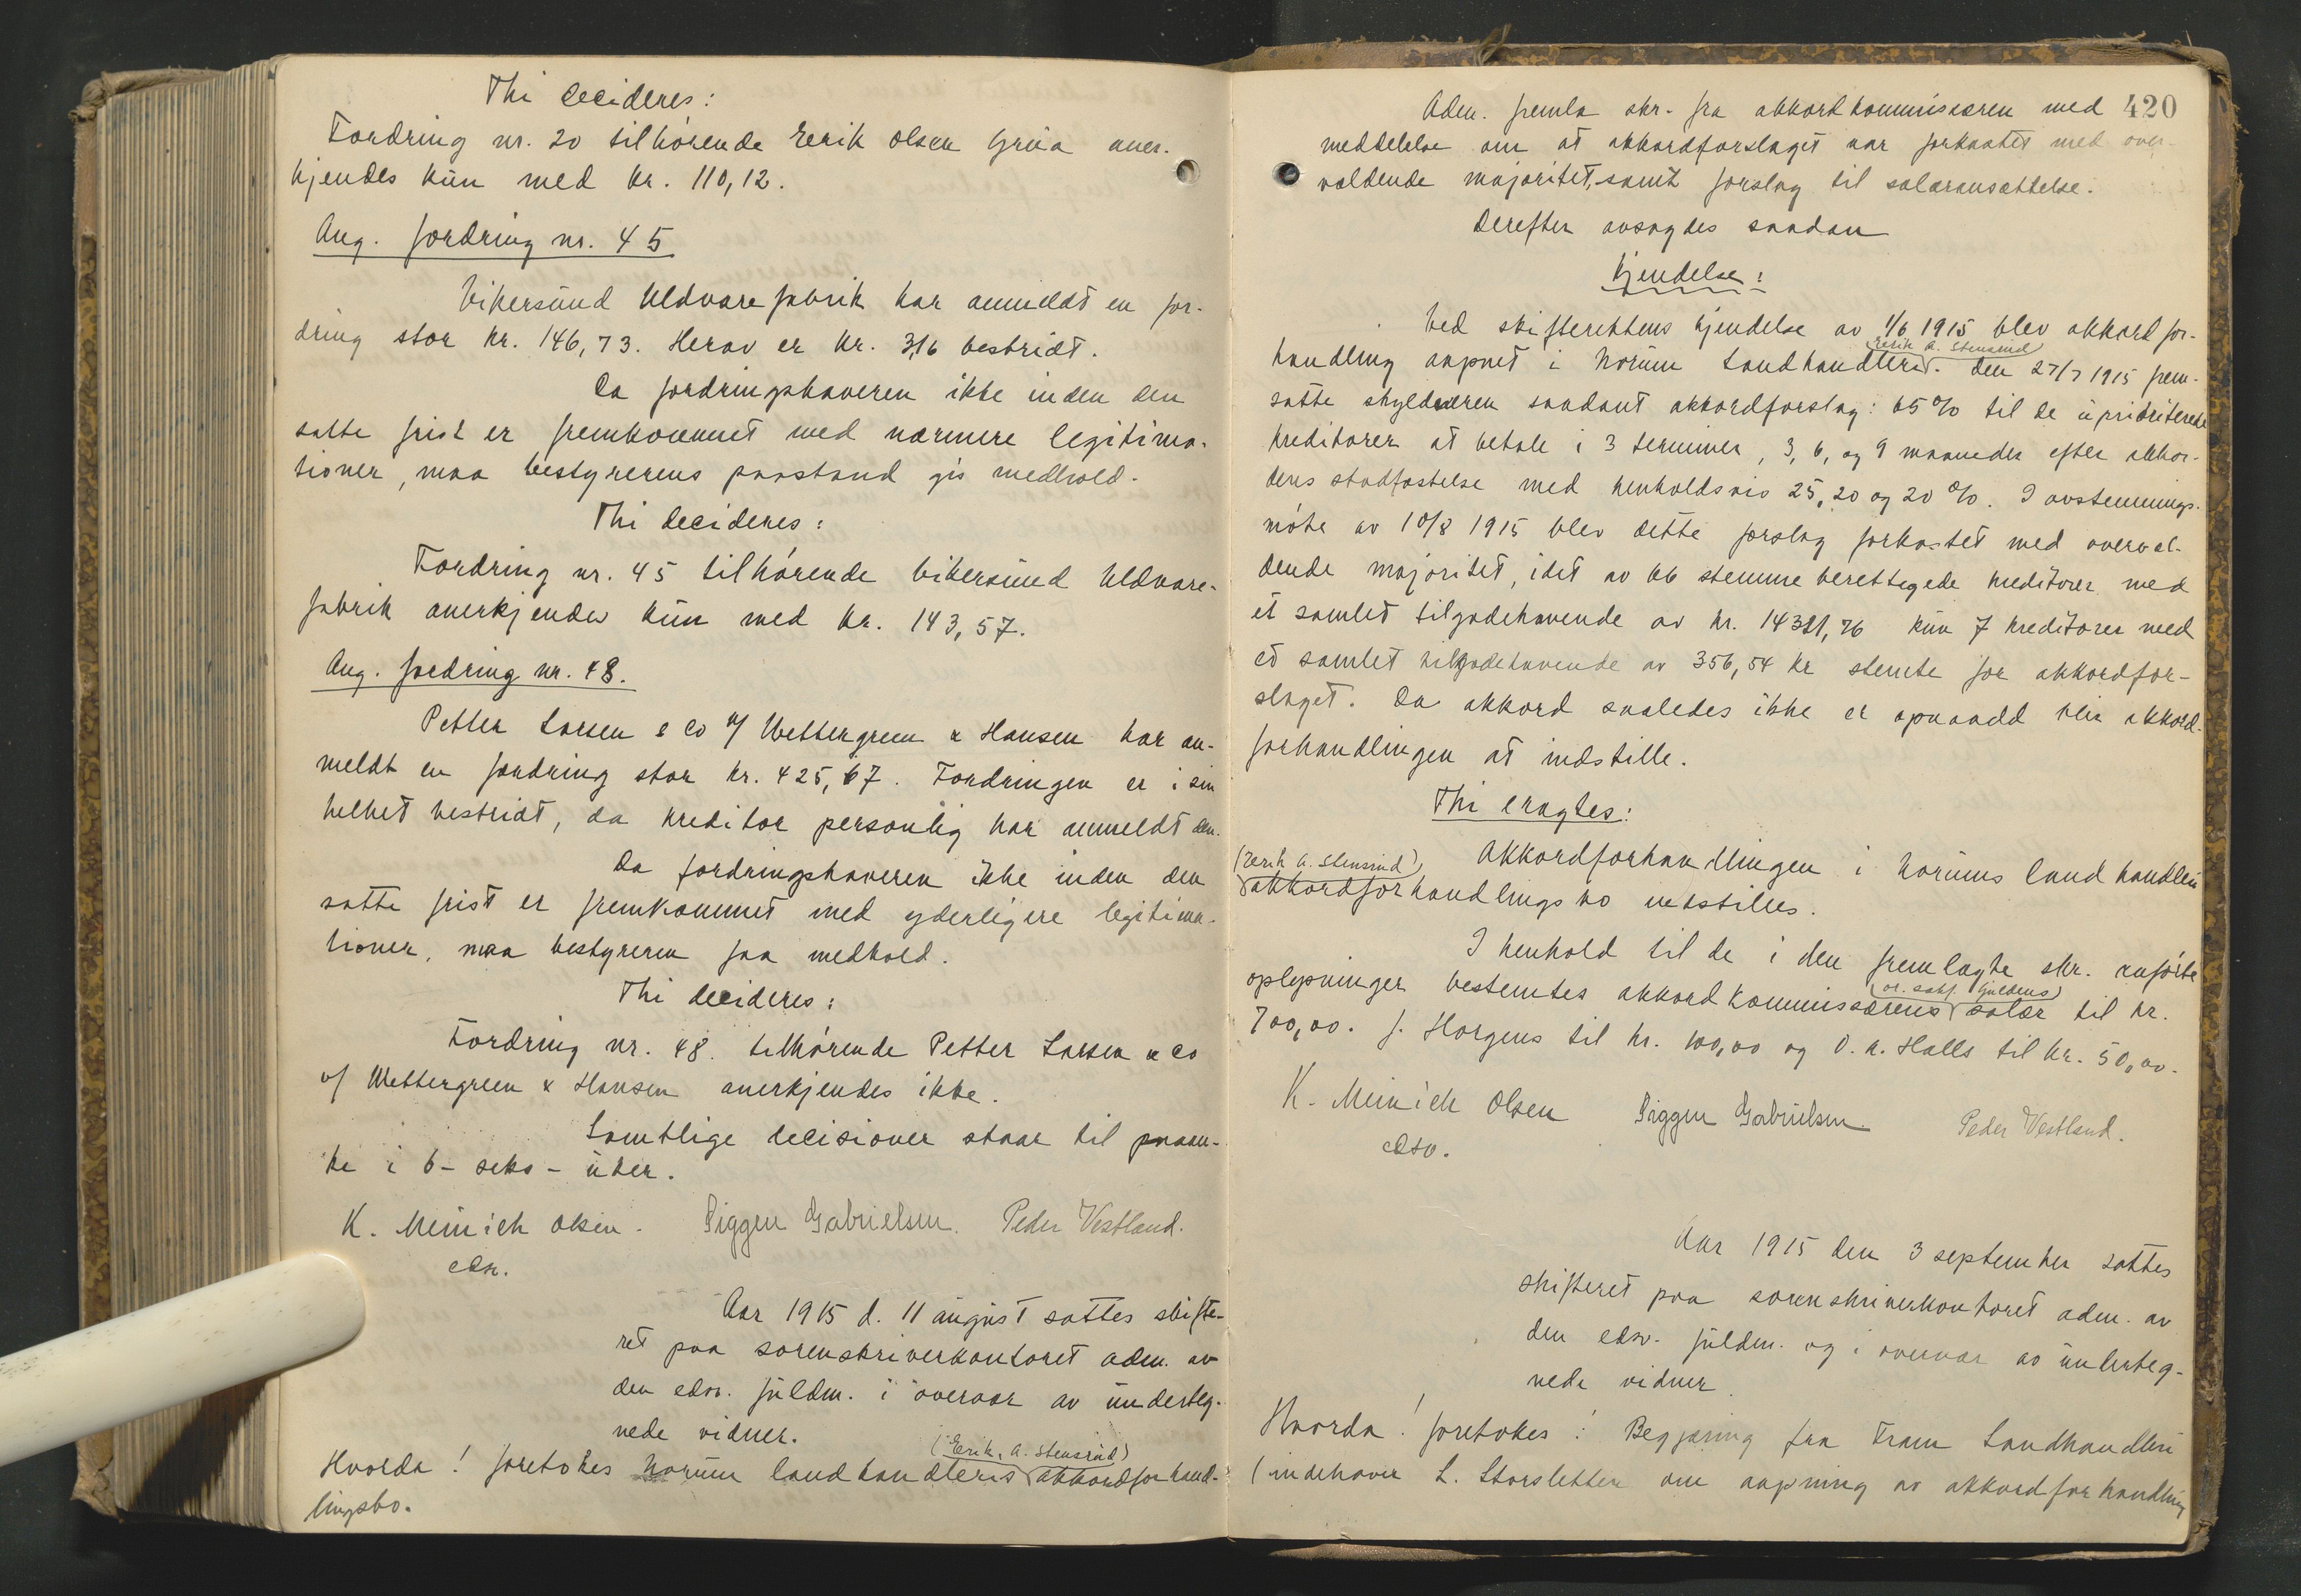 Thi decideres:
Fordring nr. 20 tilhörende Eerik Olsen Grua aner-
kjendes kun med kr. 110,12.
Ang. fordring nr. 45
Vikersund Uldvarefabrik har anmeldt en for-
dring stor kr. 146,73. Herav er kr. 3,16 bestridt.
Da fordringshaveren ikke inden den
satte frist er fremkommet med nærmere legitima-
tioner, maa bestyrerens paastand gis medhold.
Thi decideres:
Fordring nr. 45 tilhörende Vikersund Uldvare-
fabrik anerkjendes kun med kr. 143,57.
Ang. fordring nr. 48.
Petter Larsen & Co v/ Wettergreen & Hansen har an-
meldt en fordring stor kr. 425,67. Fordringen er i sin
helhet bestridt, da kreditor personlig har anmeldt den.
Da fordringshaveren ikke inden den
satte frist er fremkommet med yderligere legitima-
tioner, maa bestyreren faa medhold.
Thi decideres:
Fordring nr. 48. tilhörende Petter Larsen & Co
v/ Wettergreen & Hansen anerkjendes ikke.
Samtlige decisioner staar til paaan-
ke i 6 - seks - uker.
K. Meinich Olsen. Piggen Gabrielsen. Peder Vestland.
edsv.
Aar 1915 d. 11 august sattes skifte-
ret paa sorenskriverkontoret adm. av
den edsv. fuldm. i overvær av underteg-
nede vidner.
(Erik A. Stensrud)
Hvorda! foretokes Norum landhandleris akkordforhand-
lingsbo.
420
Adm. fremla skr. fra akkordkommisæren med
meddelelse om at akkordforslaget var forkastet med over-
vældende majoritet, samt forslag til salæransættelse.
Derefter avsagdes saadan
Kjendelse:
Ved skifterettens kjendelse av 1/6 1915 blev akkordfor-
(Eerik A. Stensrud)
handling aapnet i Norum Landhandleri. Den 27/7 1915 frem-
satte skyldneren saadant akkordforslag: 65 % til de uprioriterede
kreditorer at betale i 3 terminer, 3, 6, og 9 maaneder efter akkor-
dens stadfæstelse med henholdsvis 25, 20 og 20 %. I avstemnings-
möte av 10/8 1915 blev dette forslag forkastet med overvæl-
dende majoritet, idet av 66 stemmeberettigede kreditorer med
et samlet tilgodehavende av kr. 14321,76 kun 7 kreditorer med
et samlet tilgodehavende av 356,54 kr stemte for akkordfor-
slaget. Da akkord saaledes ikke er opnaadd blir akkord-
forhandlingen at indstille.
Thi eragtes:
Akkordforhandlingen i Norums landhandleri
(Eerik A. Stensrud)
akkordforhandlingsbo indstilles.
I henhold til de i den fremlagte skr. anförte
(o. sakf. Guldens)
oplysninger bestemtes akkordkommissærens salær til kr.
700,00. J. Horgens til kr. 100,00 og O. A. Halls til kr. 50,00.
K. Meinich Olsen Piggen Gabrielsen Peder Vestland.
edsv.
Aar 1915 den 3 september sattes
skifteret paa sorenskriverkontoret adm. av
den edsv. fuldm. og i overvær av underteg-
nede vidner.
Hvorda! foretokes: Begjæring fra Fram Landhandleri
(indehaver L. Storsletten om aapning av akkordforhandling